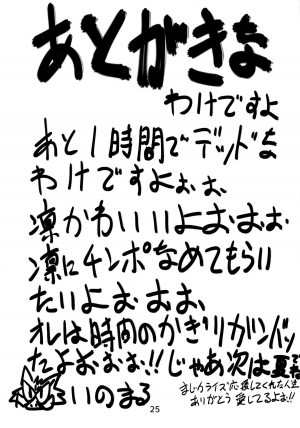 あとがきな
わけですよ
あと1時間でデッドな
わけですよぉぉ、
凛かわいいよおぉぉぉ
凛にチンポなめてもらい
たいよおぉぉぉ、
オレは時間のかぎりガンバッ
たよおおぉぉ!!じゃあ次は夏でね
いのまる
まじカライズ応援してくれた人達
ありがとう 愛してるよぉ!!
25